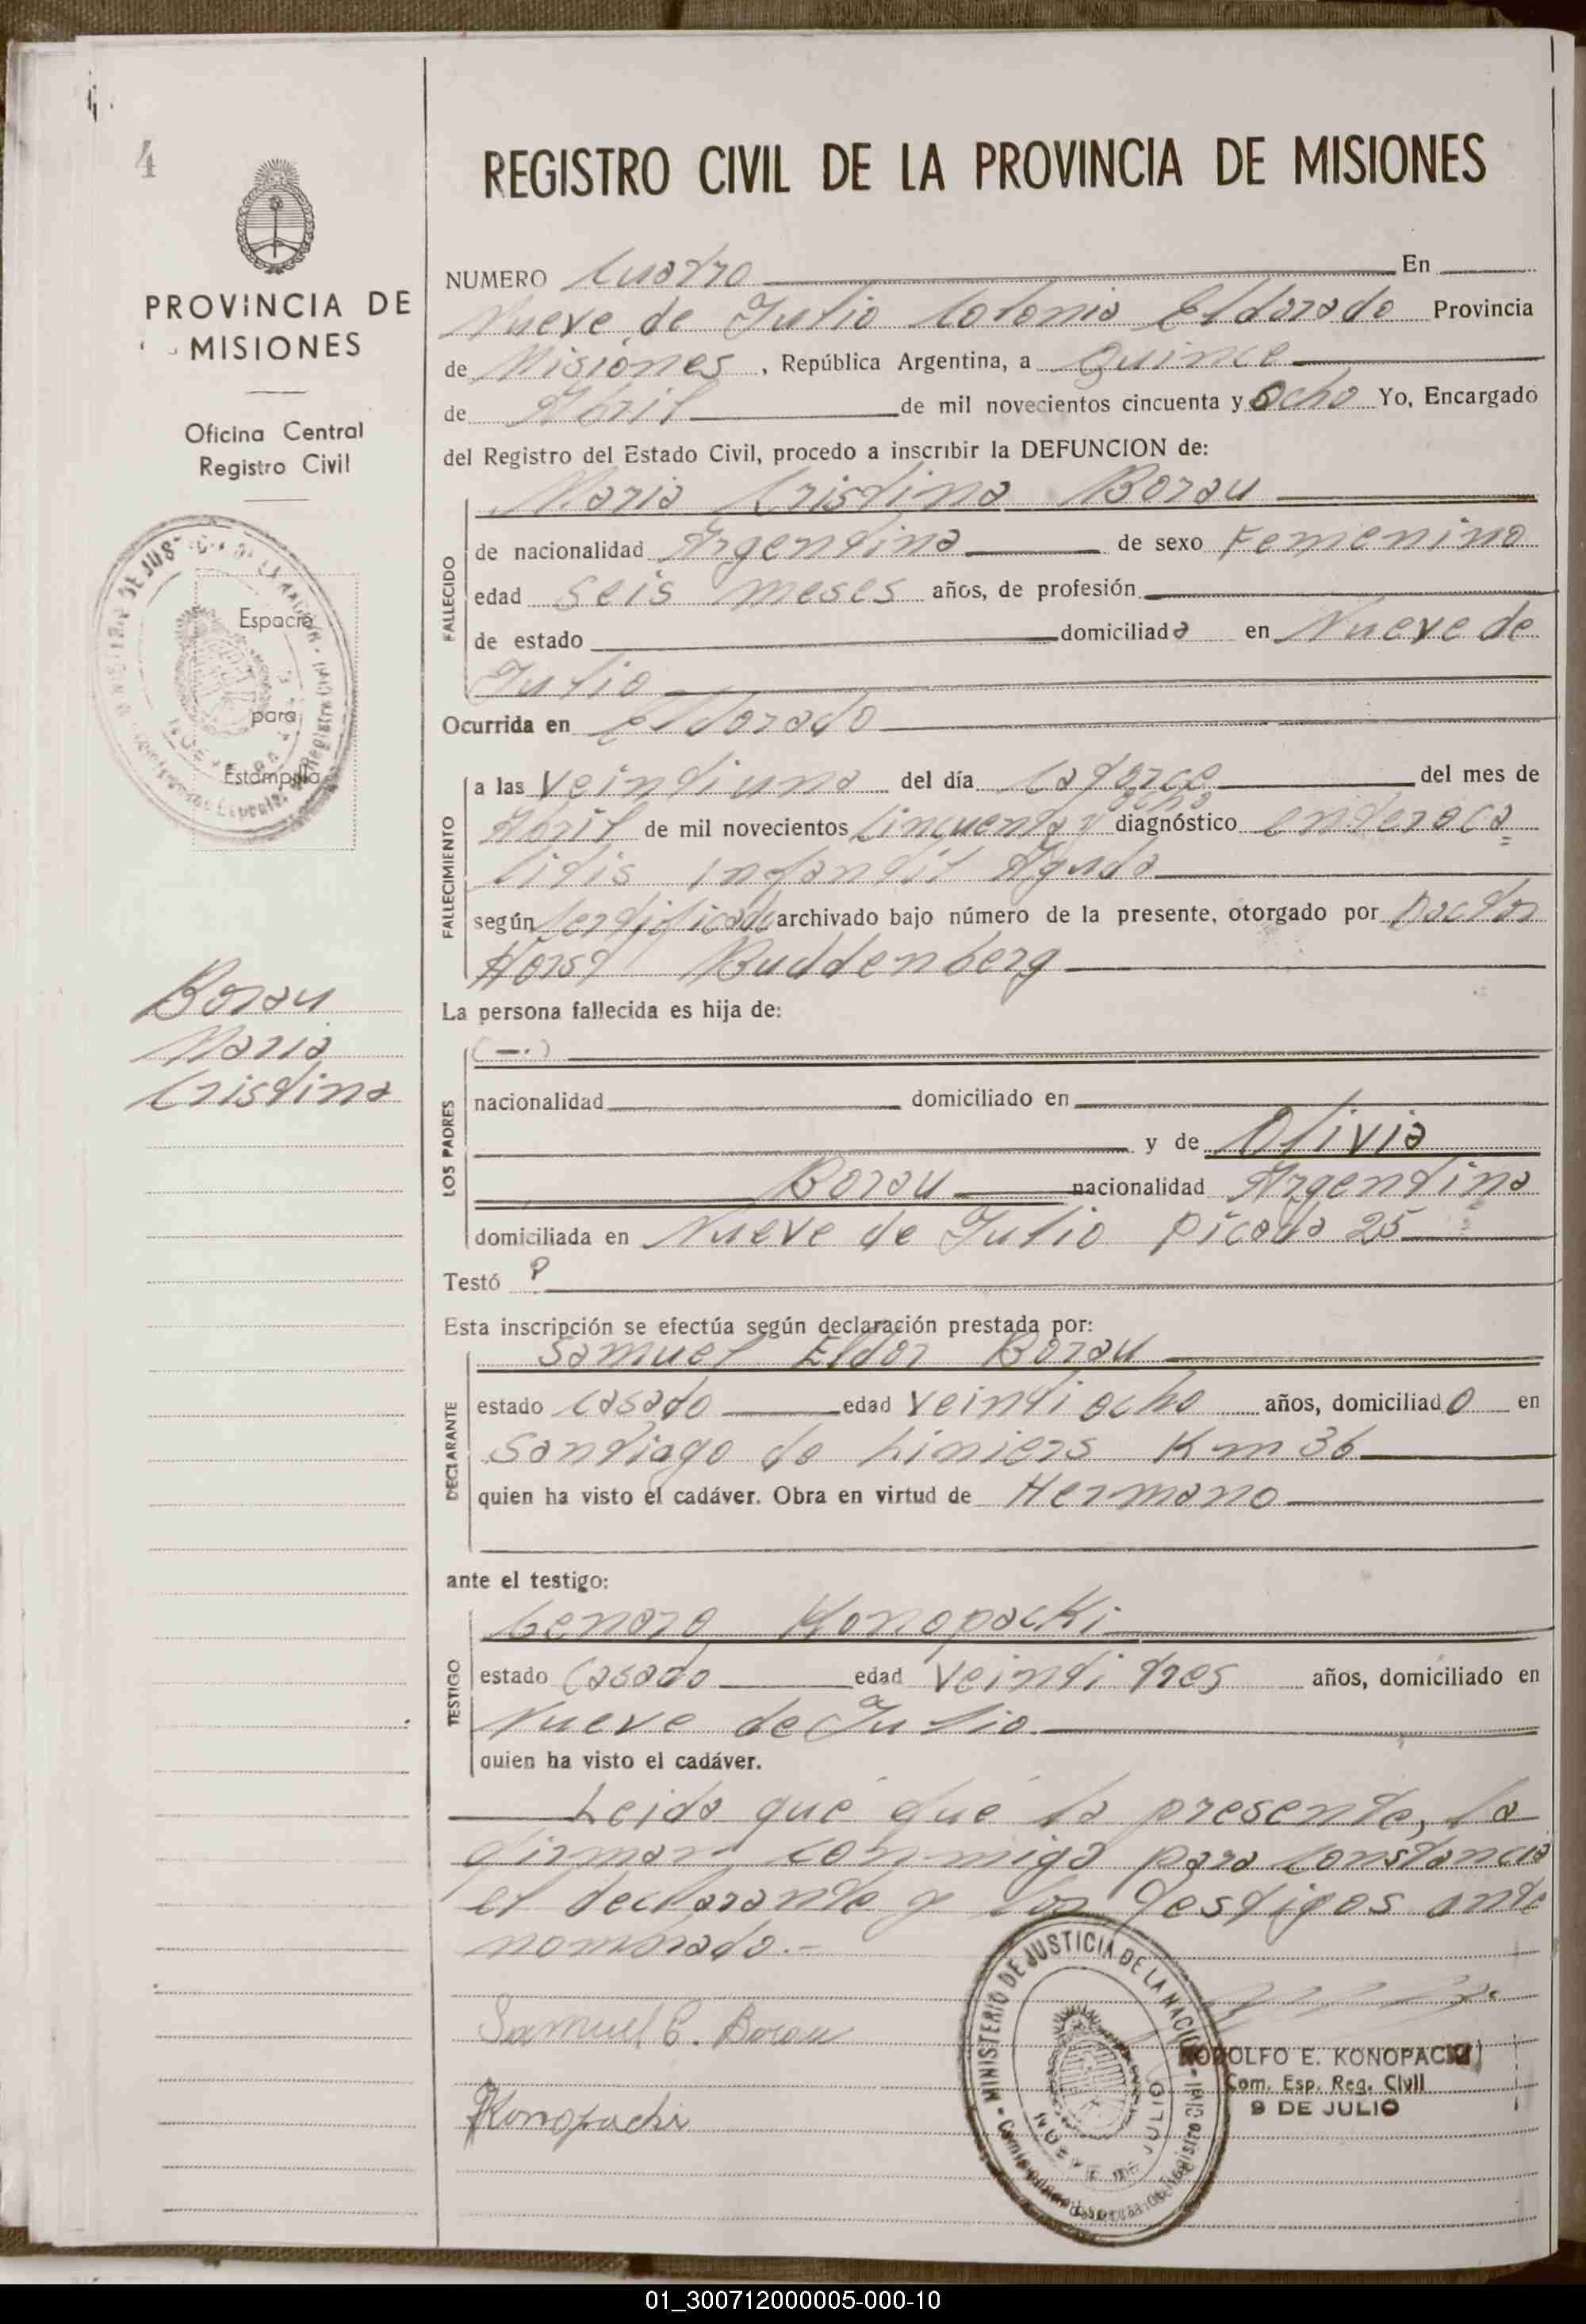 4
PROVINCIA DE
MISIONES
Oficina Central
Registro Civil
Espacio
para
Estampilla
Borau
Maria
Cristina
REGISTRO CIVIL DE LA PROVINCIA DE MISIONES
NUMERO Cuatro En
Nueve de Julio Colonia Eldorado Provincia
de Misiones, República Argentina, a Quince
de Abril de mil novecientos cincuenta y ocho Yo, Encargado
del Registro del Estado Civil, procedo a inscribir la DEFUNCION de:
Maria Cristina Borau
FALLECIDO
de nacionalidad Argentina de sexo Femenino
edad seis meses años, de profesión
de estado domiciliada en Nueve de
Julio
Ocurrida en Eldorado
FALLECIMIENTO
a las veintiuna del día catorce del mes de
ocho
Abril de mil novecientos cincuenta y diagnóstico enteroco=
litis infantil Aguda
según certificado archivado bajo número de la presente, otorgado por Doctor
Horst Buddenberg
La persona fallecida es hija de:
LOS PADRES
(—.)
nacionalidad domiciliado en
y de Olivia
Borau nacionalidad Argentina
domiciliada en Nueve de Julio picada 25
Testó
Esta inscripción se efectúa según declaración prestada por:
DECLARANTE
Samuel Eldor Borau
estado casado edad veinti ocho años, domiciliado en
Santiago de Liniers Km 36
quien ha visto el cadáver. Obra en virtud de Hermano
ante el testigo:
TESTIGO
Genaro Konopacki
estado casado edad veinti tres años, domiciliado en
Nueve de Julio
quien ha visto el cadáver.
Leida que fue la presente, la
firman conmigo para constancia
el declarante y los testigos ante
nombrado.-
Samuel E. Borau
Konopacki
MINISTERIO DE JUSTICIA DE LA NACION
NUEVE DE JULIO
RODOLFO E. KONOPACKI
Com. Esp. Reg. Civil
9 DE JULIO
01_300712000005-000-10